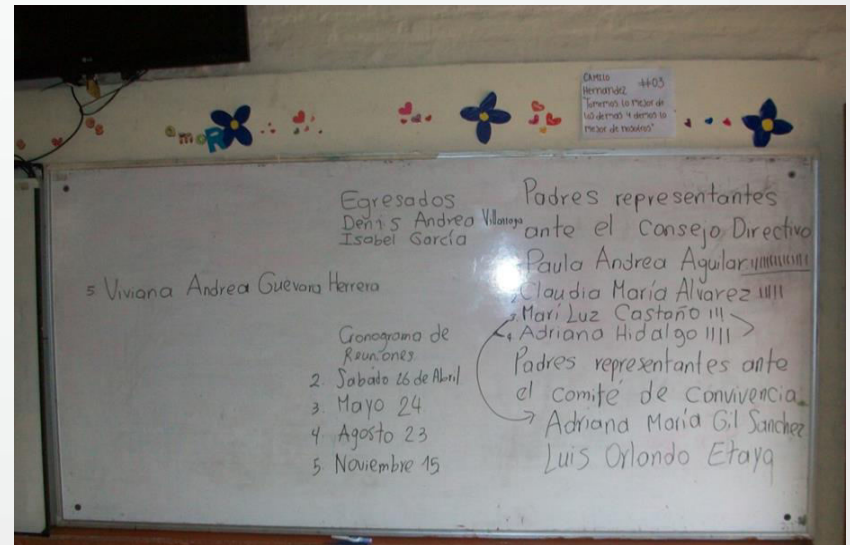 amoR
CAMILO
Hernandez 4403
lo mejor de
los demas y demos lo
mejor de nosotros"
Egresados
Denis Andrea
Isabel García
5 Viviana Andrea Guevara Herrera
Cronograma de
Reuniones
2. Sabado 26 de Abril
3. Mayo 24
4. Agosto 23
5. Noviembre 15
Padres representantes
ante el Consejo Directivo
Paula Andrea Aguilar
Claudia María Álvarez IIII
3. Mari Luz Castaño III
4 Adriana Hidalgo IIII
Padres representantes ante
el comité de convivencia.
Adriana María Gil Sanchez
Luis Orlando Etaya